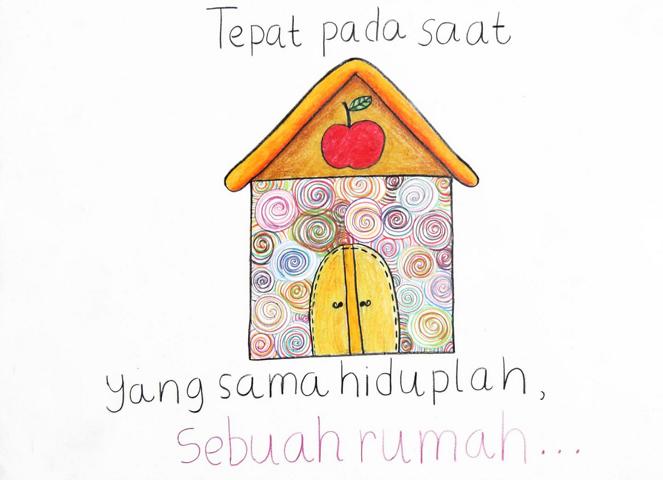 Tepat pada saat
yang sama hiduplah,
Sebuah rumah...